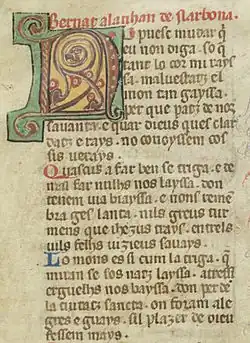 Bernat alanhan de narbona.
No puesc mudar q̄
ieu non diga. so q̄
tant lo cor mi rays
sa. maluestatz el
mon tan gayssa.
per que patz de nos
sauanta. e quar dieus ques clar
datz e rays. no conoyssem cos
sis uerays.
Quascus a far ben se triga. e de
mal far nulhs nos layssa. don
tenem uia biayssa. e nons rem̄e
bra ges lanta. nils greus tur
mens que ihezus trays. entrels
uils felhs iuzieus sauays.
Lo mons es si cum la triga. q̄
se sos natz layssa. atressi
erguelhs nos bayssa. don per de
la ciutatz sancta. on foram ale
gres e guays. sil plazer de dieu
fessem mays.